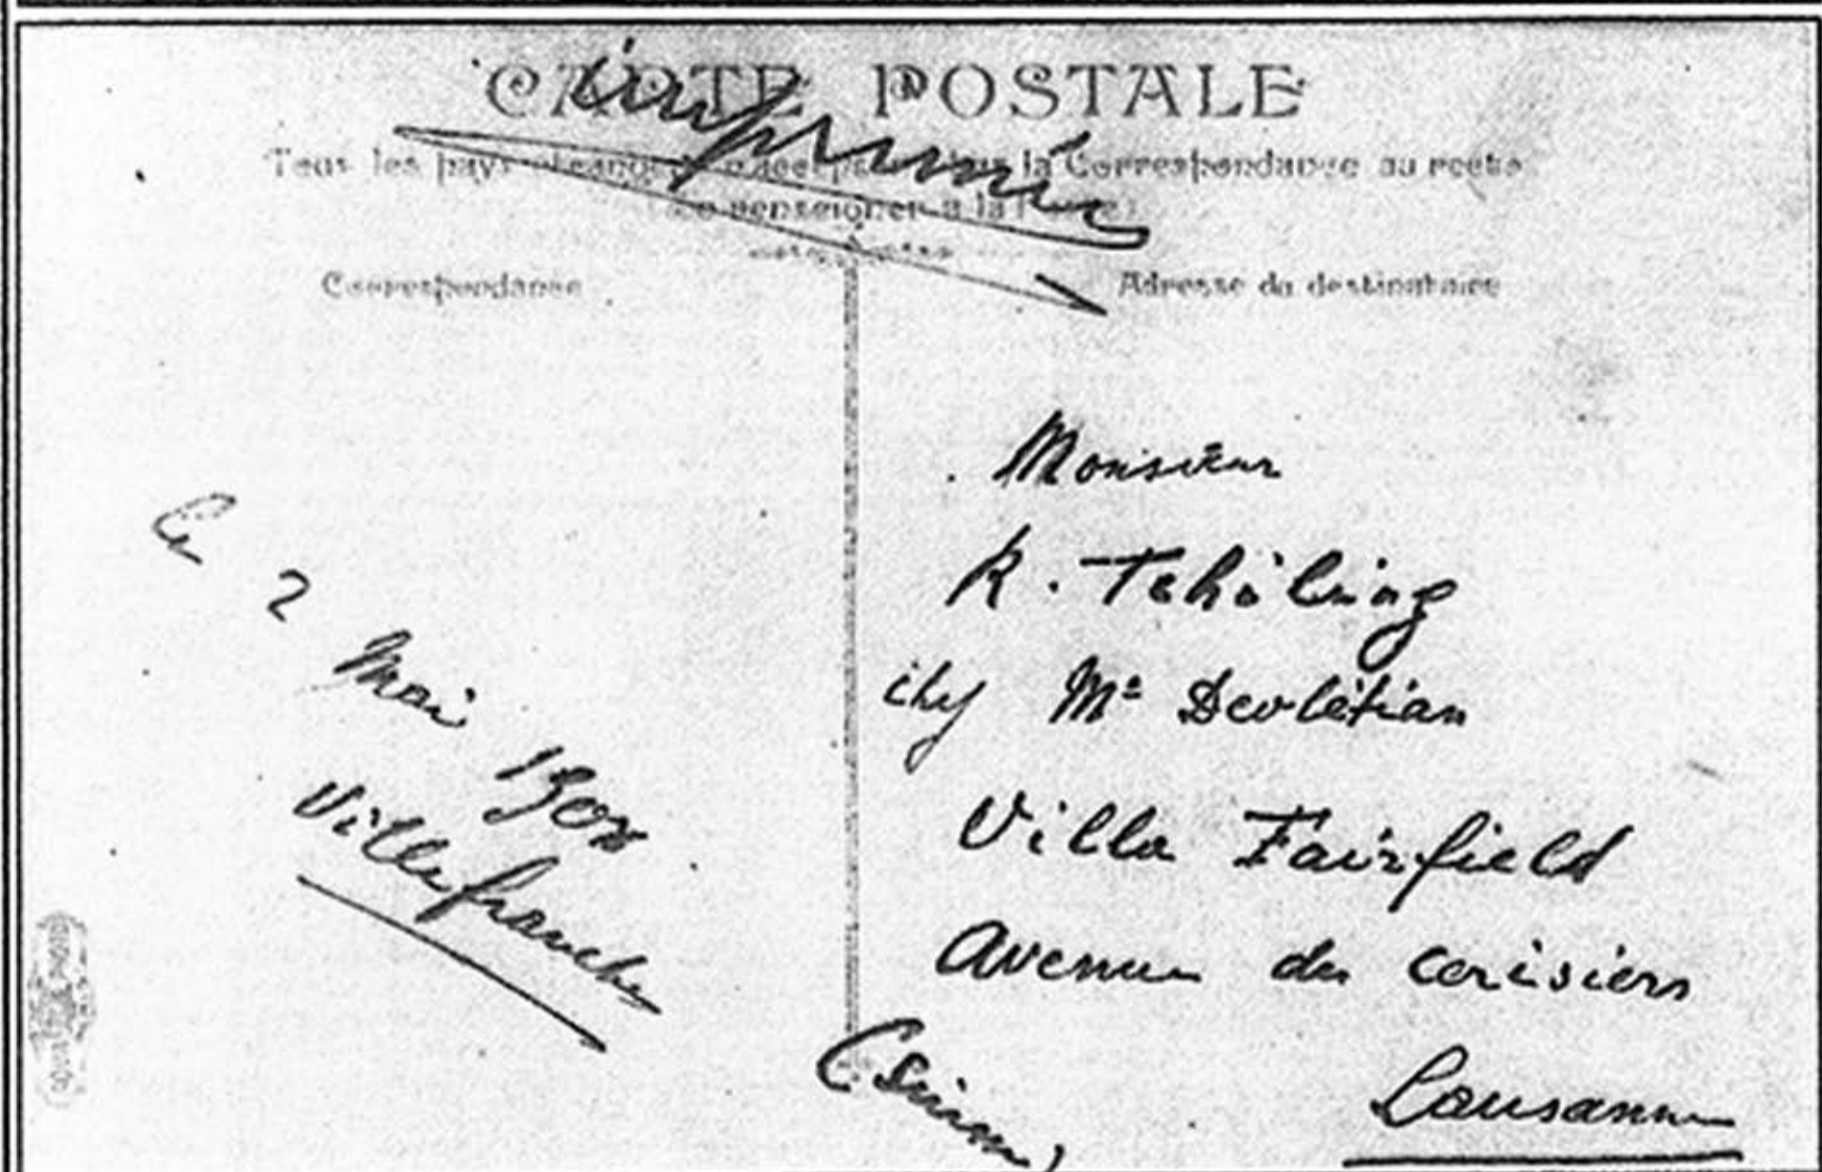 CARTE POSTALE
imprimé
Tous les pays étrangers n'acceptent pas la Correspondance au recto
se renseigner à la
Correspondance
Adresse du destinataire
Ce 2 Mai
Villefranche
Monsieur
K. Tehéling
chez Mr Devlétian
Villa Fairfield
Avenue des cerisiers
Lausanne
(Suisse)